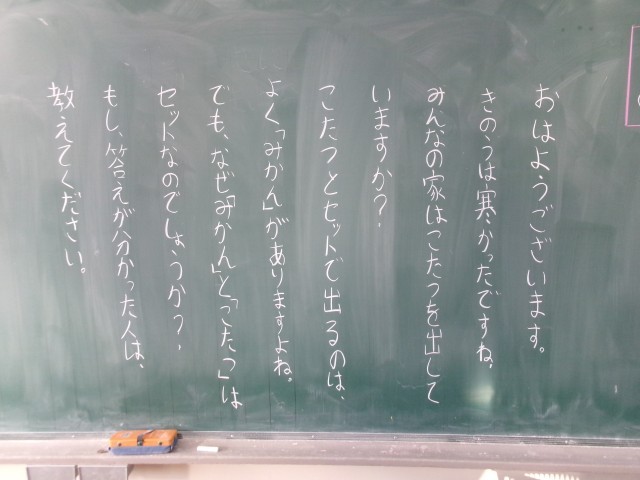 おはようございます。
きのうは寒かったですね。
みんなの家はこたつを出して
いますか？
こたつとセットで出るのは、
よく「みかん」がありますよね。
でも、なぜ「みかん」と「こたつ」は
セットなのでしょうか？
もし、答えが分かった人は、
教えてください。